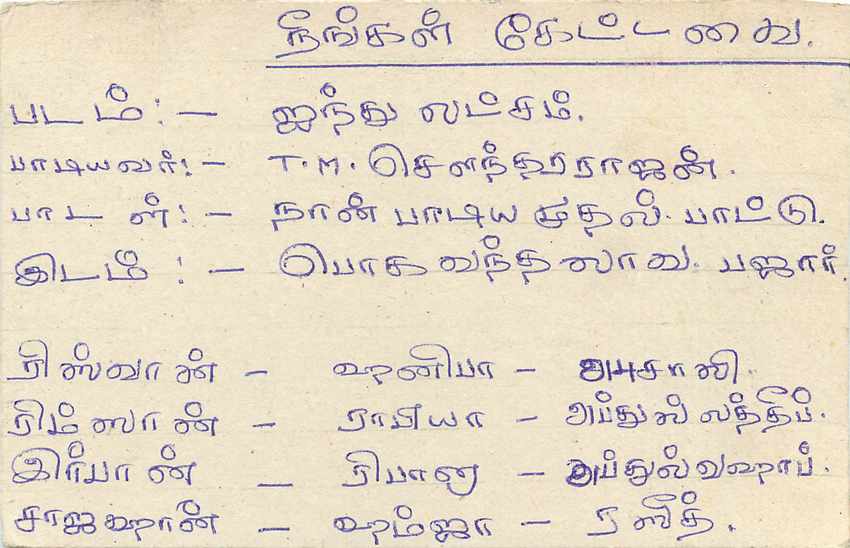 நீங்கள் கேட்டவை.
படம்:- ஐந்து லட்சம்.
பாடியவர்:- T.M. சௌந்தரராஜன்.
பாடள்:- நான் பாடிய முதல் பாட்டு.
இடம்:- பொகவந்தலாவ. பஜார்.
ரிஸ்வான் - ஹனிபா -
ரிம்ஸான் - ராபியா - அப்துல் லத்தீப்.
இர்பான் - ரிபானு - அப்துல்வஹாப்.
சாஜஹான் - ஹம்ஜா - ரஸீத்.